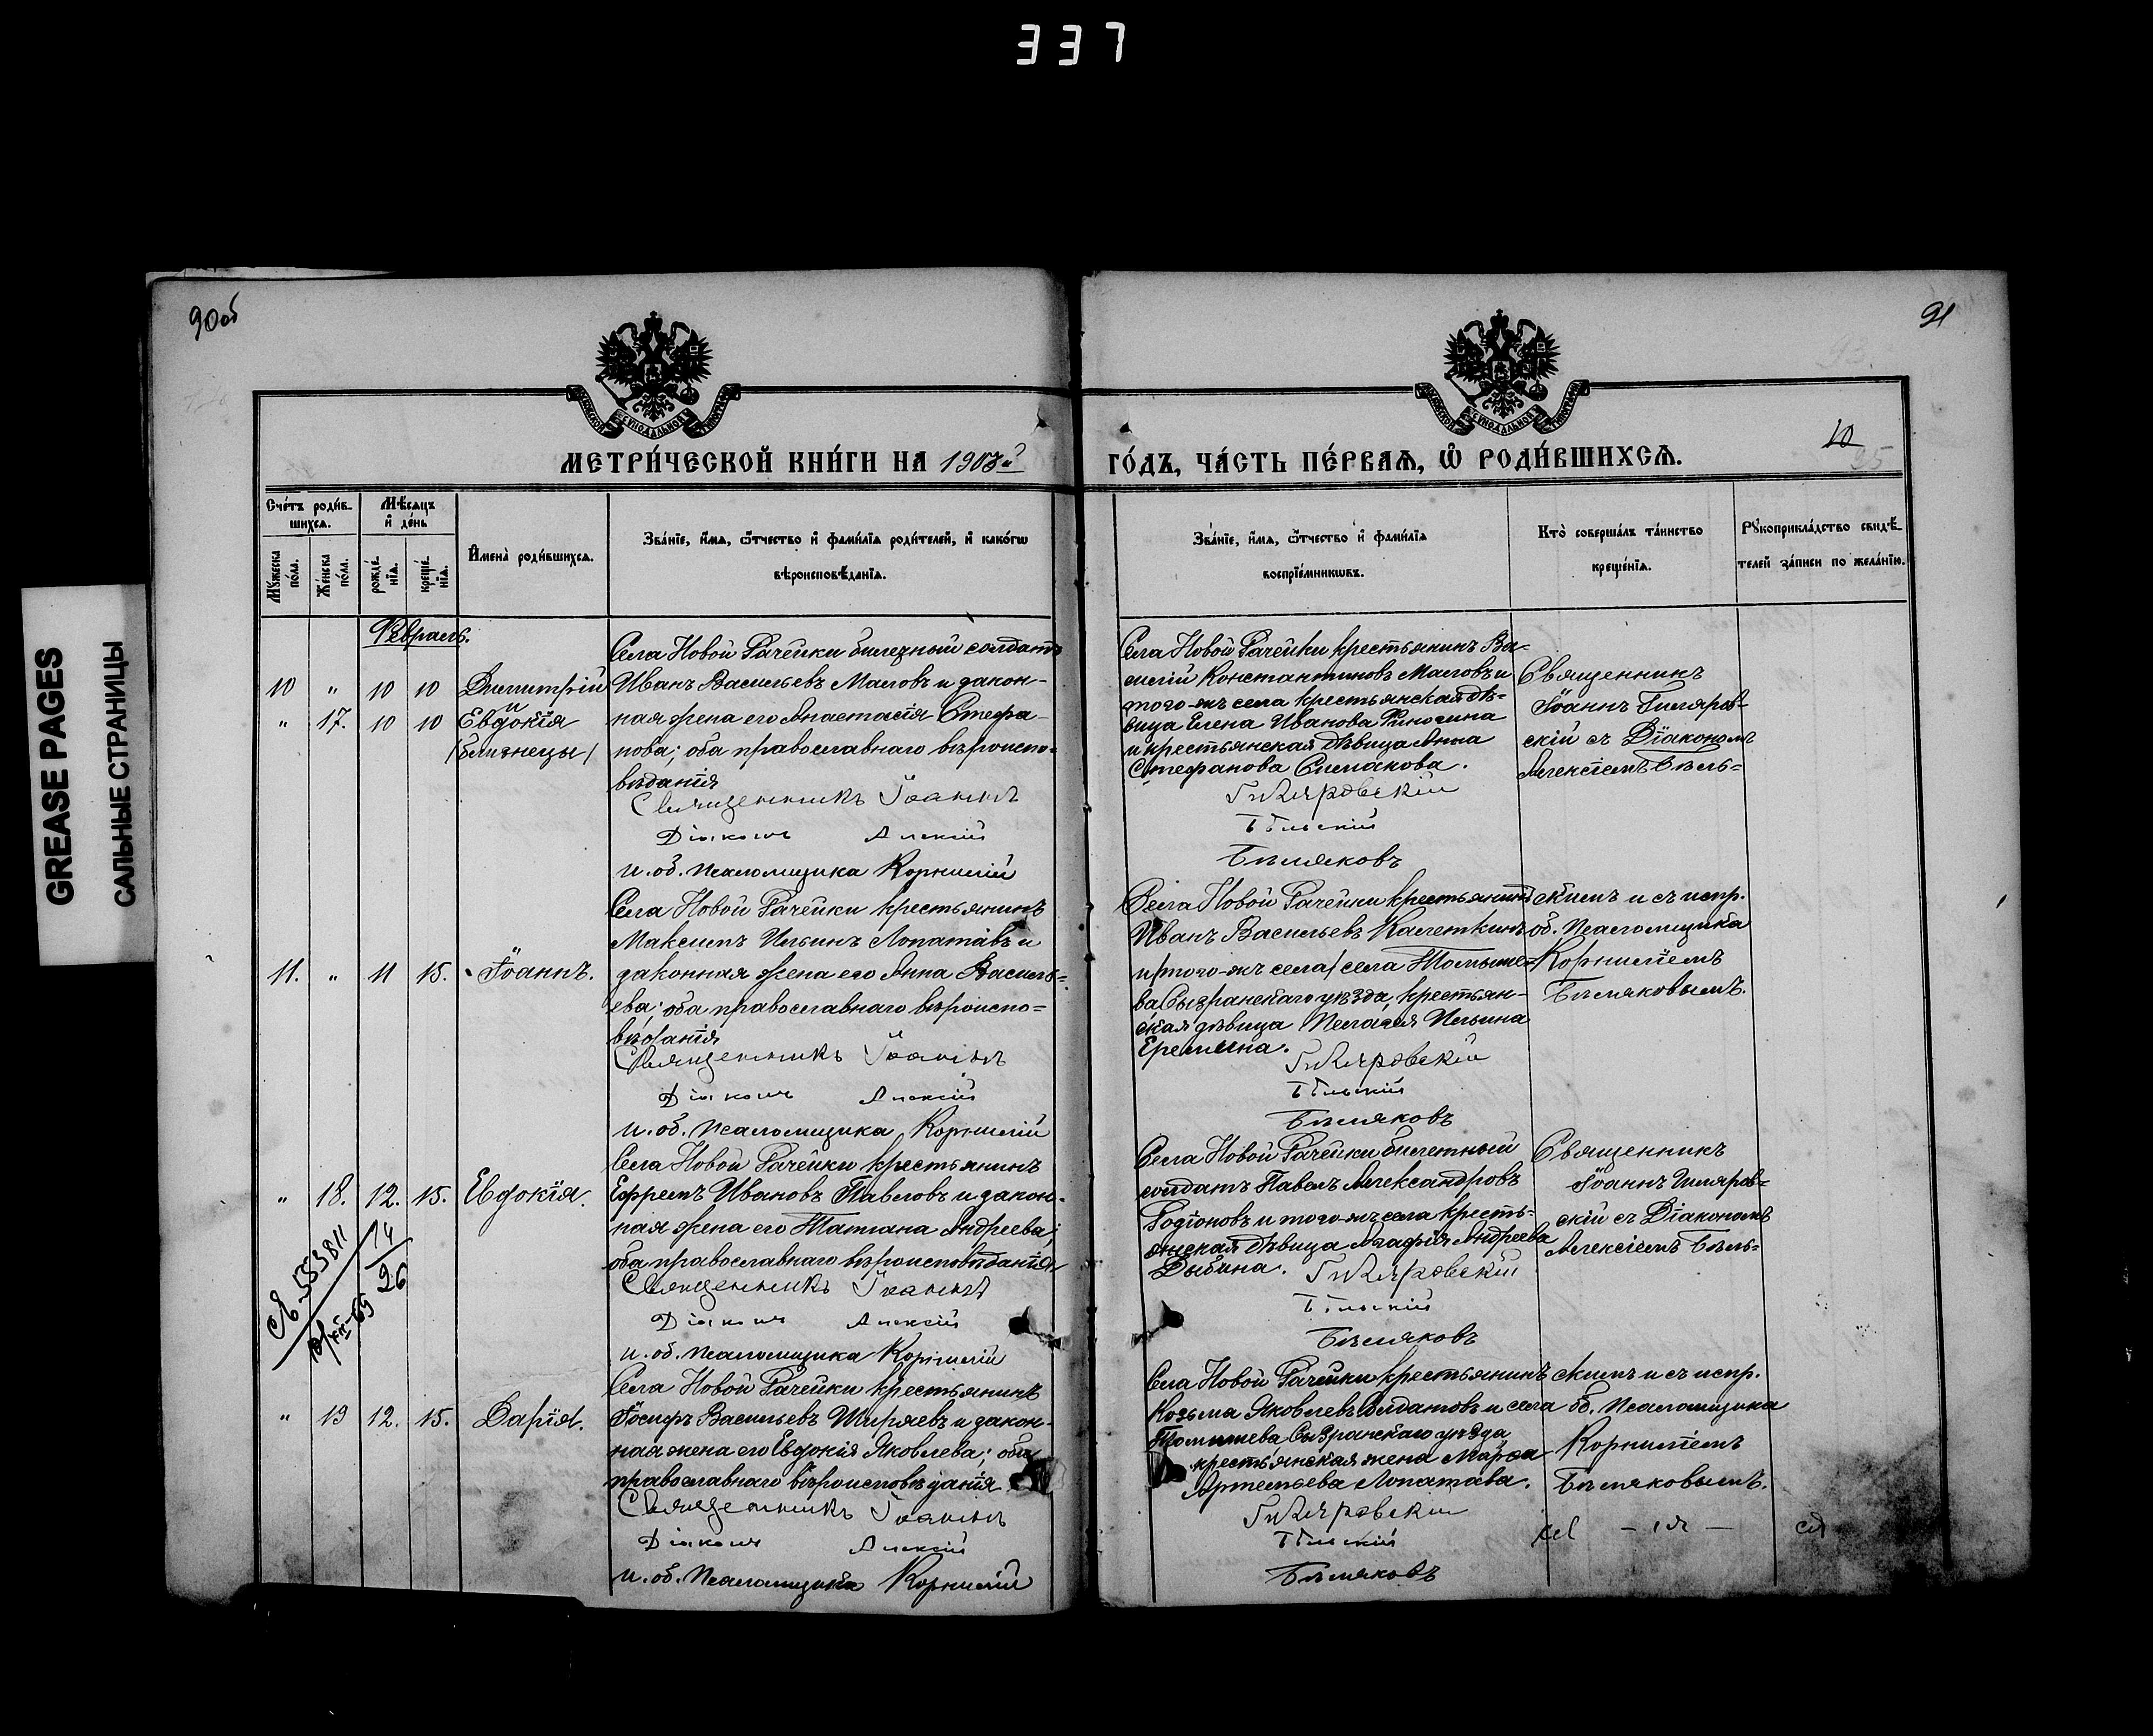 337
GREASE PAGES
САЛЬНЫЕ СТРАНИЦЫ
90об
91
10
МЕТРИ́ЧЕСКОЙ КНИ́ГИ НА 1903й
ГО́ДЪ, ЧА́СТЬ ПЕ́РВАѦ, Ѡ҆ РОДИ́ВШИХСѦ.
Сче́тъ роди́вшихсѧ.
Мѣ́сяцъ и҆ де́нь
Мꙋ́жеска по́ла.
Же́нска по́ла.
рожде́нїѧ.
креще́нїѧ.
И҆мена̀ роди́вшихсѧ.
Зва́нїе, и҆́мѧ, ѻ҆́тчество и҆ фами́лїѧ роди́телей, и҆ како́гѡ
вѣроисповѣ́данїѧ.
Зва́нїе, и҆́мѧ, ѻ҆́тчество и҆ фами́лїѧ
воспрїе́мникѡвъ.
Кто̀ соверша́лъ та́инство
креще́нїѧ.
Рꙋкоприкла́дство свидѣ́-
телей за́писи по жела́нїю.
Февраль.
10 " 10 10 Димитрій
" 17. 10 10 Евдокія
/близнецы/
Села Новой Рачейки билетный солдатъ
Иванъ Васильевъ Масловъ и закон-
ная жена его Анастасія Стефа-
нова; оба православнаго вѣроиспо-
вѣданія
Священникъ Іоаннъ
Діаконъ Алексій
и. об. Псаломщика Корнилій
Села Новой Рачейки крестьянинъ Ва-
силій Константиновъ Масловъ и
того-жъ села крестьянская дѣ-
вица Елена Иванова
и крестьянская дѣвица Анна
Стефанова Симакова.
Гиляровскій
Бѣльскій
Бѣляковъ
Священникъ
Іоаннъ Гиляров-
скій съ Діакономъ
Алексіемъ Бѣль-
11. " 11 15. Іоаннъ.
Села Новой Рачейки крестьянинъ
Максимъ Ильинъ Лопатавъ и
законная жена его Анна Василь-
ева; оба православнаго вѣроиспо-
вѣданія
Священникъ Іоаннъ
Діаконъ Алексій
И. об. Псаломщика Корнилій
Села Новой Рачейки крестьянинъ
Иванъ Васильевъ Калеткинъ
и /того-жъ села/ села Томыше-
ва Сызранскаго уѣзда, крестьян-
ская дѣвица Пелагея Ильина
Еремина.
Гиляровскій
Бѣльскій
Бѣляковъ
скимъ и съ испр.
об. Псаломщика
Корниліемъ
Бѣляковымъ.
" 18. 12. 15. Евдокія.
Села Новой Рачейки крестьянинъ
Ефремъ Ивановъ Павловъ и закон-
ная жена его Татіана Андреева;
оба православнаго вѣроисповѣданія
Священникъ Іоаннъ
Діаконъ Алексій
и. об. Псаломщика Корнилій
Села Новой Рачейки билетный
солдатъ Павелъ Александровъ
Родіоновъ и того-жъ села кресть-
янская дѣвица Агафія Андреева
Дыбина.
Гиляровскій
Бѣльскій
Бѣляковъ
Священникъ
Іоаннъ Гиляров-
скій съ Діакономъ
Алексіемъ Бѣль-
553811
14
26
" 19 12. 15. Дарія.
Села Новой Рачейки крестьянинъ
Іосифъ Васильевъ Ширяевъ и закон-
ная жена его Евдокія Яковлева; оба
православнаго вѣроисповѣданія
Священникъ Іоаннъ
Діаконъ Алексій
и. об. Псаломщика Корнилій
Села Новой Рачейки крестьянинъ
Козьма Яковлевъ Солдатовъ и села
Томышева Сызранскаго уѣзда
крестьянская жена Марѳа
Артемьева Лопатава.
Гиляровскій
Бѣльскій
Бѣляковъ
скимъ и съ испр.
об. Псаломщика
Корниліемъ
Бѣляковымъ.